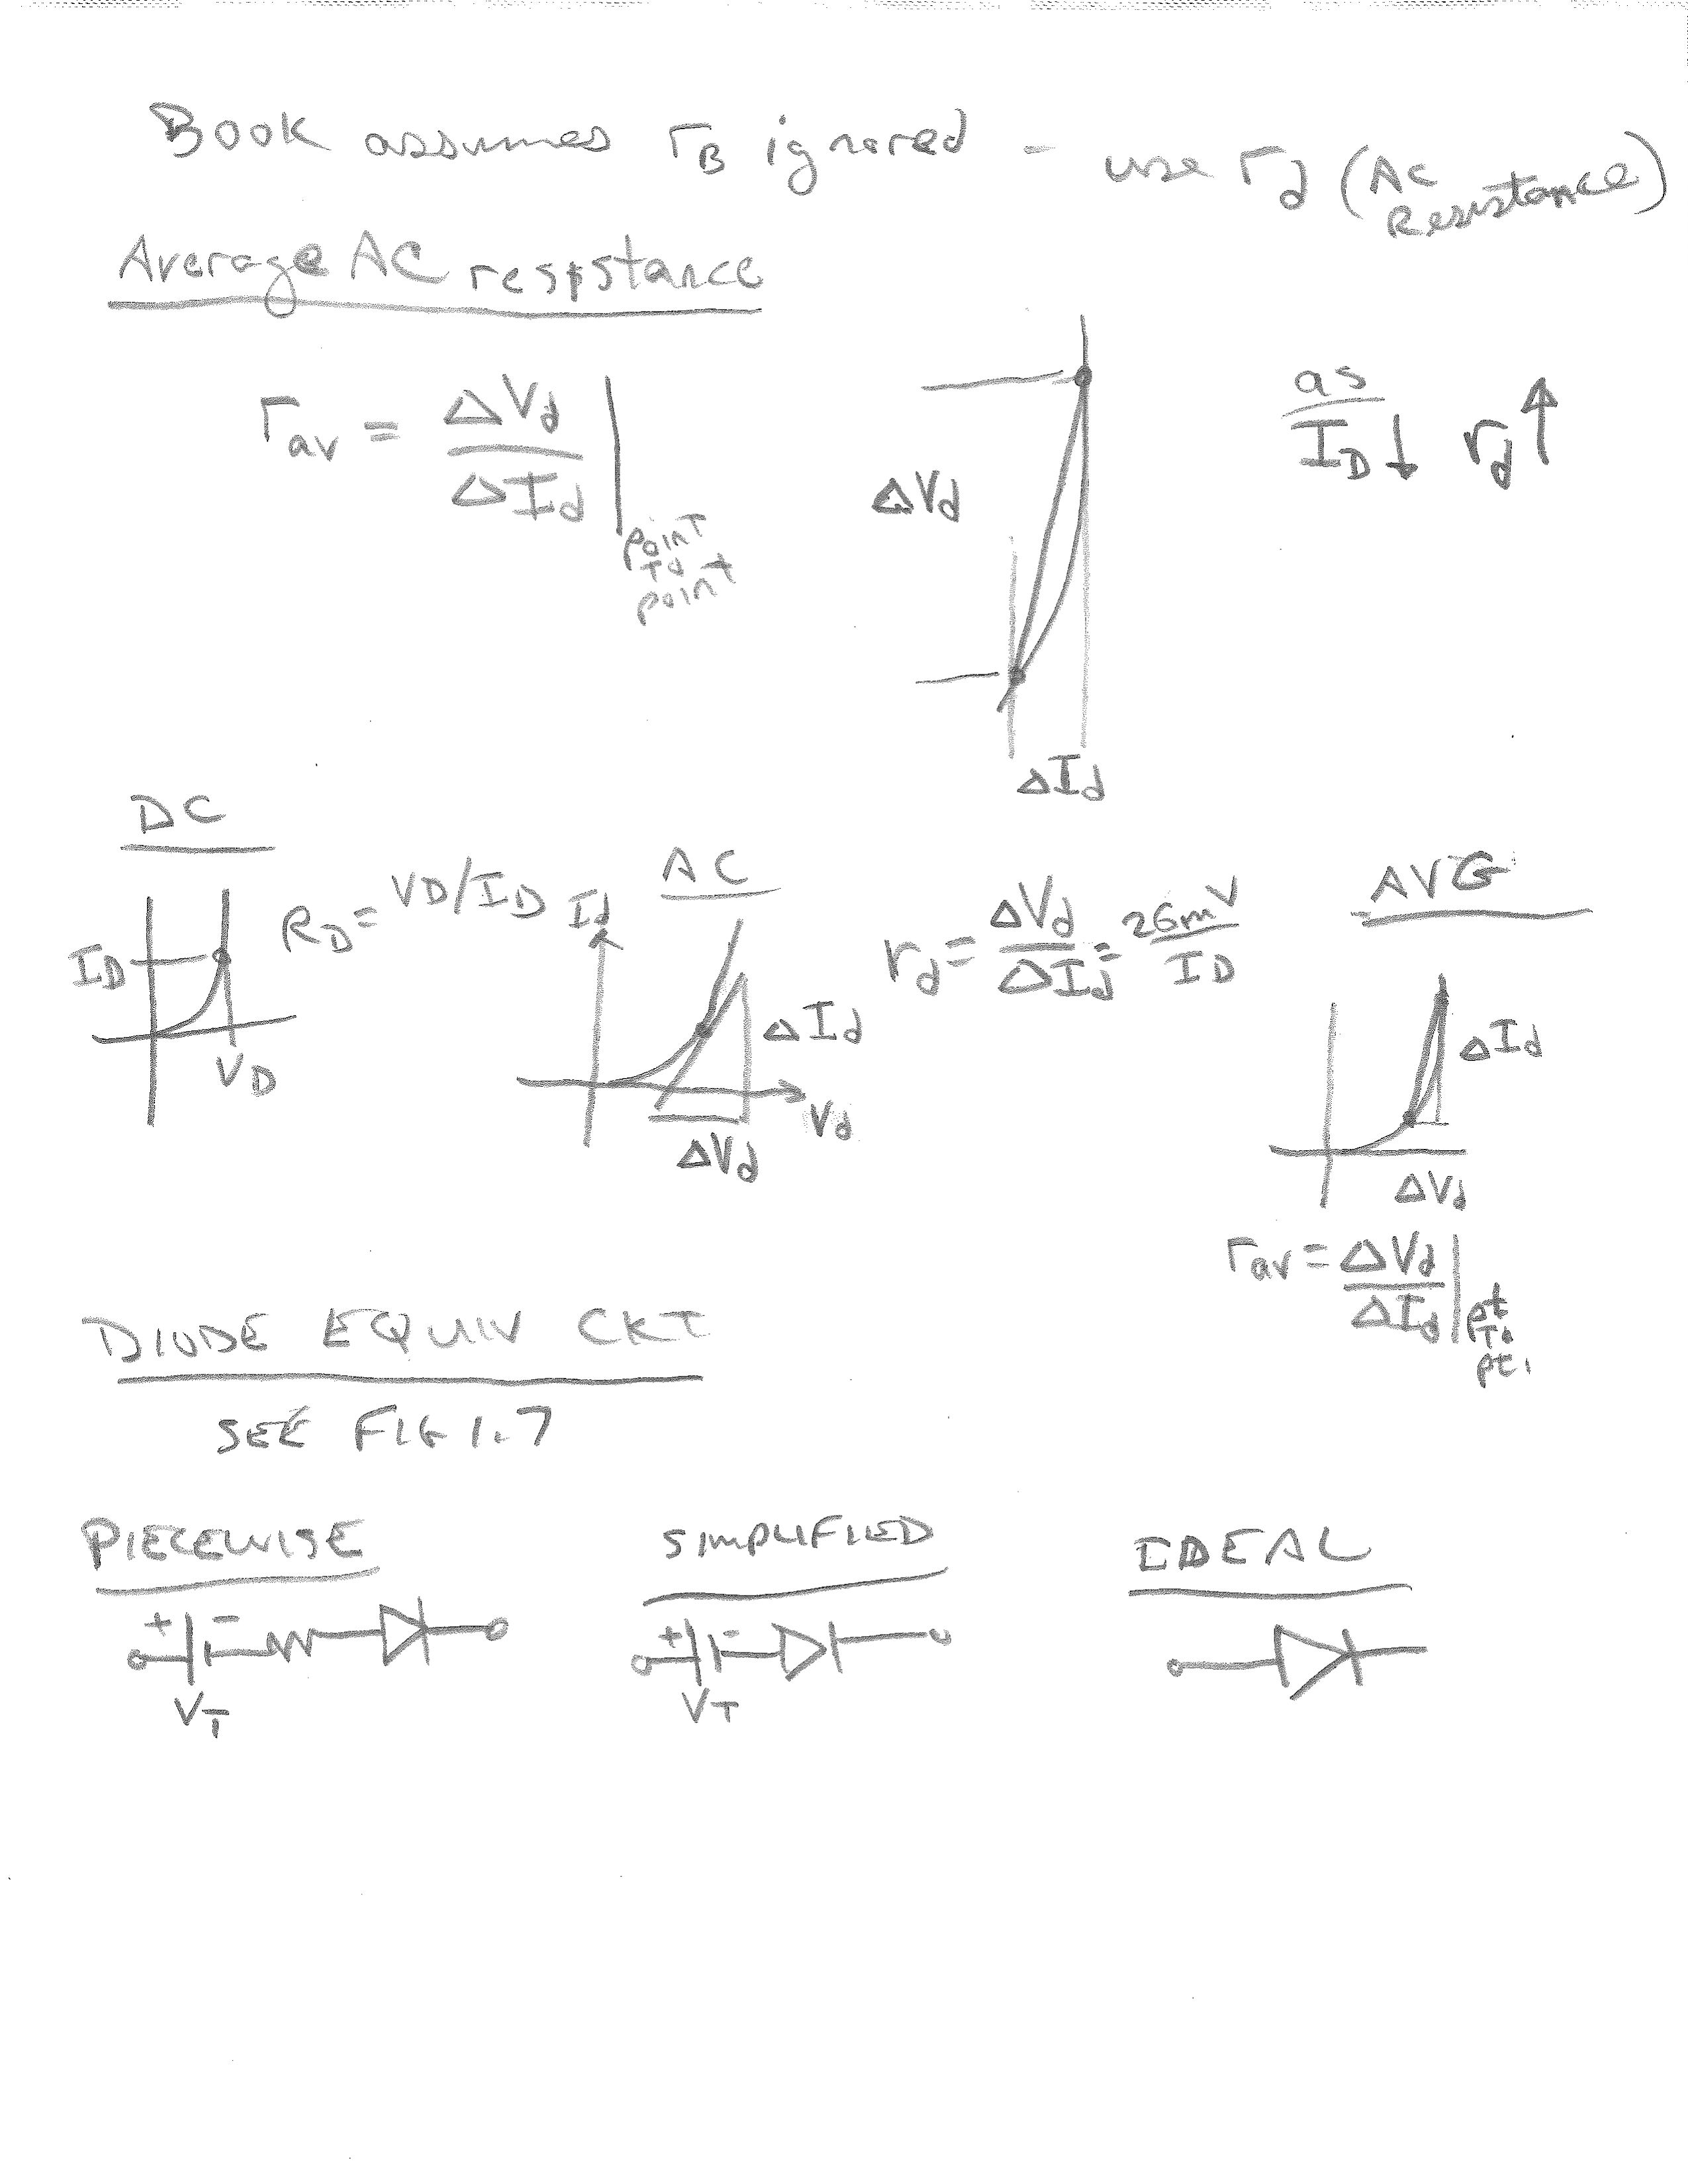 Book assumes rB ignored - use rd (AC Resistance)
Average AC respstance
rav = ΔVd / ΔId | point To point
ΔVd
ΔId
as
ID ↓ rd ↑
DC
ID
VD
RD = VD/ID
AC
Id
ΔId
Vd
ΔVd
rd = ΔVd / ΔId = 26mV / ID
AVG
ΔId
ΔVd
rav = ΔVd / ΔId | pt To pt.
DIODE EQUIV CKT
SEE FIG 1.7
PIECEWISE
+ -
VT
SIMPLIFIED
+ -
VT
IDEAL